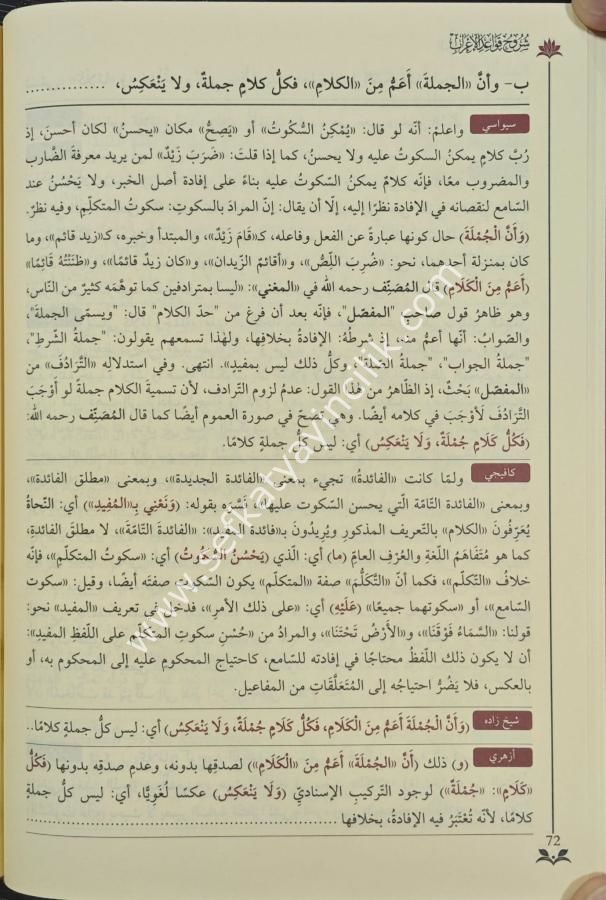 شروح قواعد الإعراب
ب- وأنّ «الجملةَ» أَعَمُّ مِنَ «الكلامِ»، فكلُّ كلامٍ جملةٌ، ولا يَنْعَكِسُ، ...............
سيواسي واعلمْ: أنّه لو قال: «يُمْكِنُ السُّكُوتُ» أو «يَصِحُّ» مكان «يحسنُ» لكان أحسنَ، إذ
رُبَّ كلامٍ يمكنُ السكوت عليه ولا يحسنُ، كما إذا قلتَ: «ضَرَبَ زَيْدٌ» لمن يريد معرفةَ الضّاربِ
والمضروبِ معًا، فإنّه كلامٌ يمكنُ السّكوت عليه بناءً على إفادة أصلِ الخبر، ولا يَحْسُنُ عند
السّامع لنقصانه في الإفادة نظرًا إليه، إلّا أن يقال: إنّ المرادَ بالسكوتِ: سكوتُ المتكلِّمِ، وفيه نظرٌ.
(وَأَنَّ الْجُمْلَةَ) حال كونها عبارةً عن الفعل وفاعله، كـ«قَامَ زَيْدٌ»، والمبتدأ وخبره، كـ«زيد قائم»، وما
كان بمنزلة أحدهما، نحو: «ضُرِبَ اللِّصُّ»، و«أقائمٌ الزّيدان»، و«كان زيدٌ قائمًا»، و«ظَنَنْتُهُ قَائِمًا»
(أَعَمُّ مِنَ الْكَلَامِ) قال المُصَنِّف رحمه الله في «المغني»: «ليسا بمترادفين كما توهَّمَه كثيرٌ من النّاس،
وهو ظاهرُ قول صاحبِ "المفصّل"، فإنّه بعد أن فرغ من "حدّ الكلام" قال: "ويسمّى الجملةَ"،
والصّوابُ: أنّها أعمُّ منه، إذ شرطُهُ: الإفادةُ بخلافِها، ولهٰذا تسمعهم يقولون: "جملةُ الشّرطِ"،
"جملةُ الجواب"، "جملةُ الصّلة"، وكلُّ ذلك ليس بمفيدٍ». انتهى. وفي استدلالِه «التَّرَادُفَ» من
«المفصّل» بَحْثٌ، إذ الظّاهرُ من هٰذا القول: عدمُ لزوم التّرادف، لأن تسميةَ الكلام جملةً لو أَوْجَبَ
التَّرَادُفَ لَأَوْجَبَ في كلامه أيضًا. وهي تصحّ في صورة العموم أيضًا كما قال المُصَنِّف رحمه الله:
(فَكُلُّ كَلَامٍ جُمْلَةٌ، وَلَا يَنْعَكِسُ) أي: ليس كلُّ جملةٍ كلامًا.
كافيجي ولمّا كانت «الفائدةُ» تجيء بمعنى «الفائدة الجديدة»، وبمعنى «مطلق الفائدة»،
وبمعنى «الفائدة التّامّة الّتي يحسن السّكوت عليها»، فَسَّرَه بقوله: (وَنَعْنِي بِـ«الْمُفِيدِ») أي: النّحاةُ
يُعَرِّفُونَ «الكلام» بالتّعريف المذكور ويُرِيدُونَ بـ«فائدة المفيد»: «الفائدةَ التّامّةَ»، لا مطلق الفائدةِ،
كما هو مُتَفَاهَمُ اللّغةِ والعُرْفِ العامِّ (ما) أي: الّذي (يَحْسُنُ السُّكُوتُ) أي: «سكوتُ المتكلّمِ»، فإنّه
خلافُ «التّكلّمِ»، فكما أنّ «التَّكَلُّمَ» صفة «المتكلّم» يكون السّكوتُ صفتَه أيضًا، وقيل: «سكوت
السّامع»، أو «سكوتهما جميعًا» (عَلَيْهِ) أي: «على ذلك الأمرِ»، فدخل في تعريف «المفيد» نحو:
قولنا: «السَّمَاءُ فَوْقَنَا»، و«الأَرْضُ تَحْتَنَا»، والمرادُ من «حُسْنِ سكوتِ المتكلّم على اللّفظِ المفيدِ»:
أن لا يكون ذلك اللّفظُ محتاجًا في إفادته للسّامع، كاحتياج المحكومِ عليه إلى المحكومِ به، أو
بالعكس، فلا يَضُرُّ احتياجُه إلى المُتَعَلَّقاتِ من المفاعيل.
شيخ زاده (وَأَنَّ الْجُمْلَةَ أَعَمُّ مِنَ الْكَلَامِ، فَكُلُّ كَلَامٍ جُمْلَةٌ، وَلَا يَنْعَكِسُ) أي: ليس كلُّ جملةٍ كلامًا..
أزهري (و) ذلك (أَنَّ «الجُمْلَةَ» أَعَمُّ مِنَ «الْكَلَامِ») لصدقِها بدونه، وعدمِ صدقِه بدونها (فَكُلُّ
«كَلَامٍ»: «جُمْلَةٌ») لوجود التّركيبِ الإسناديِّ (وَلَا يَنْعَكِسُ) عكسًا لُغَوِيًّا، أي: ليس كلُّ جملةٍ
كلامًا، لأنّه تُعْتَبَرُ فيه الإفادةُ، بخلافها ........................................
72
www.sefkatyayincilik.com